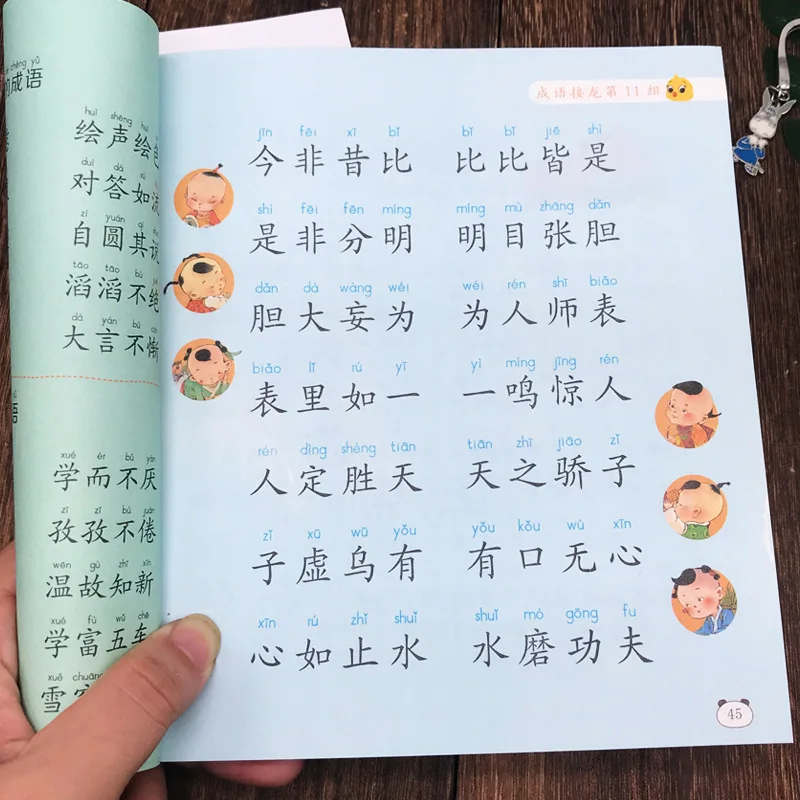 chéng yǔ
的成语
huì shēng huì
绘声绘色
duì dá rú
对答如流
zì yuán qí
自圆其说
tāo tāo bù
滔滔不绝
dà yán bù
大言不惭
语
xué ér bú yàn
学而不厌
zī zī bú juàn
孜孜不倦
wēn gù zhī xīn
温故知新
xué fù wǔ chē
学富五车
xuě chuāng
雪窗
成语接龙第11组
jīn fēi xī bǐ bǐ bǐ jiē shì
今非昔比 比比皆是
shì fēi fēn míng míng mù zhāng dǎn
是非分明 明目张胆
dǎn dà wàng wéi wéi rén shī biǎo
胆大妄为 为人师表
biǎo lǐ rú yī yì míng jīng rén
表里如一 一鸣惊人
rén dìng shèng tiān tiān zhī jiāo zǐ
人定胜天 天之骄子
zǐ xū wū yǒu yǒu kǒu wú xīn
子虚乌有 有口无心
xīn rú zhǐ shuǐ shuǐ mó gōng fu
心如止水 水磨功夫
45